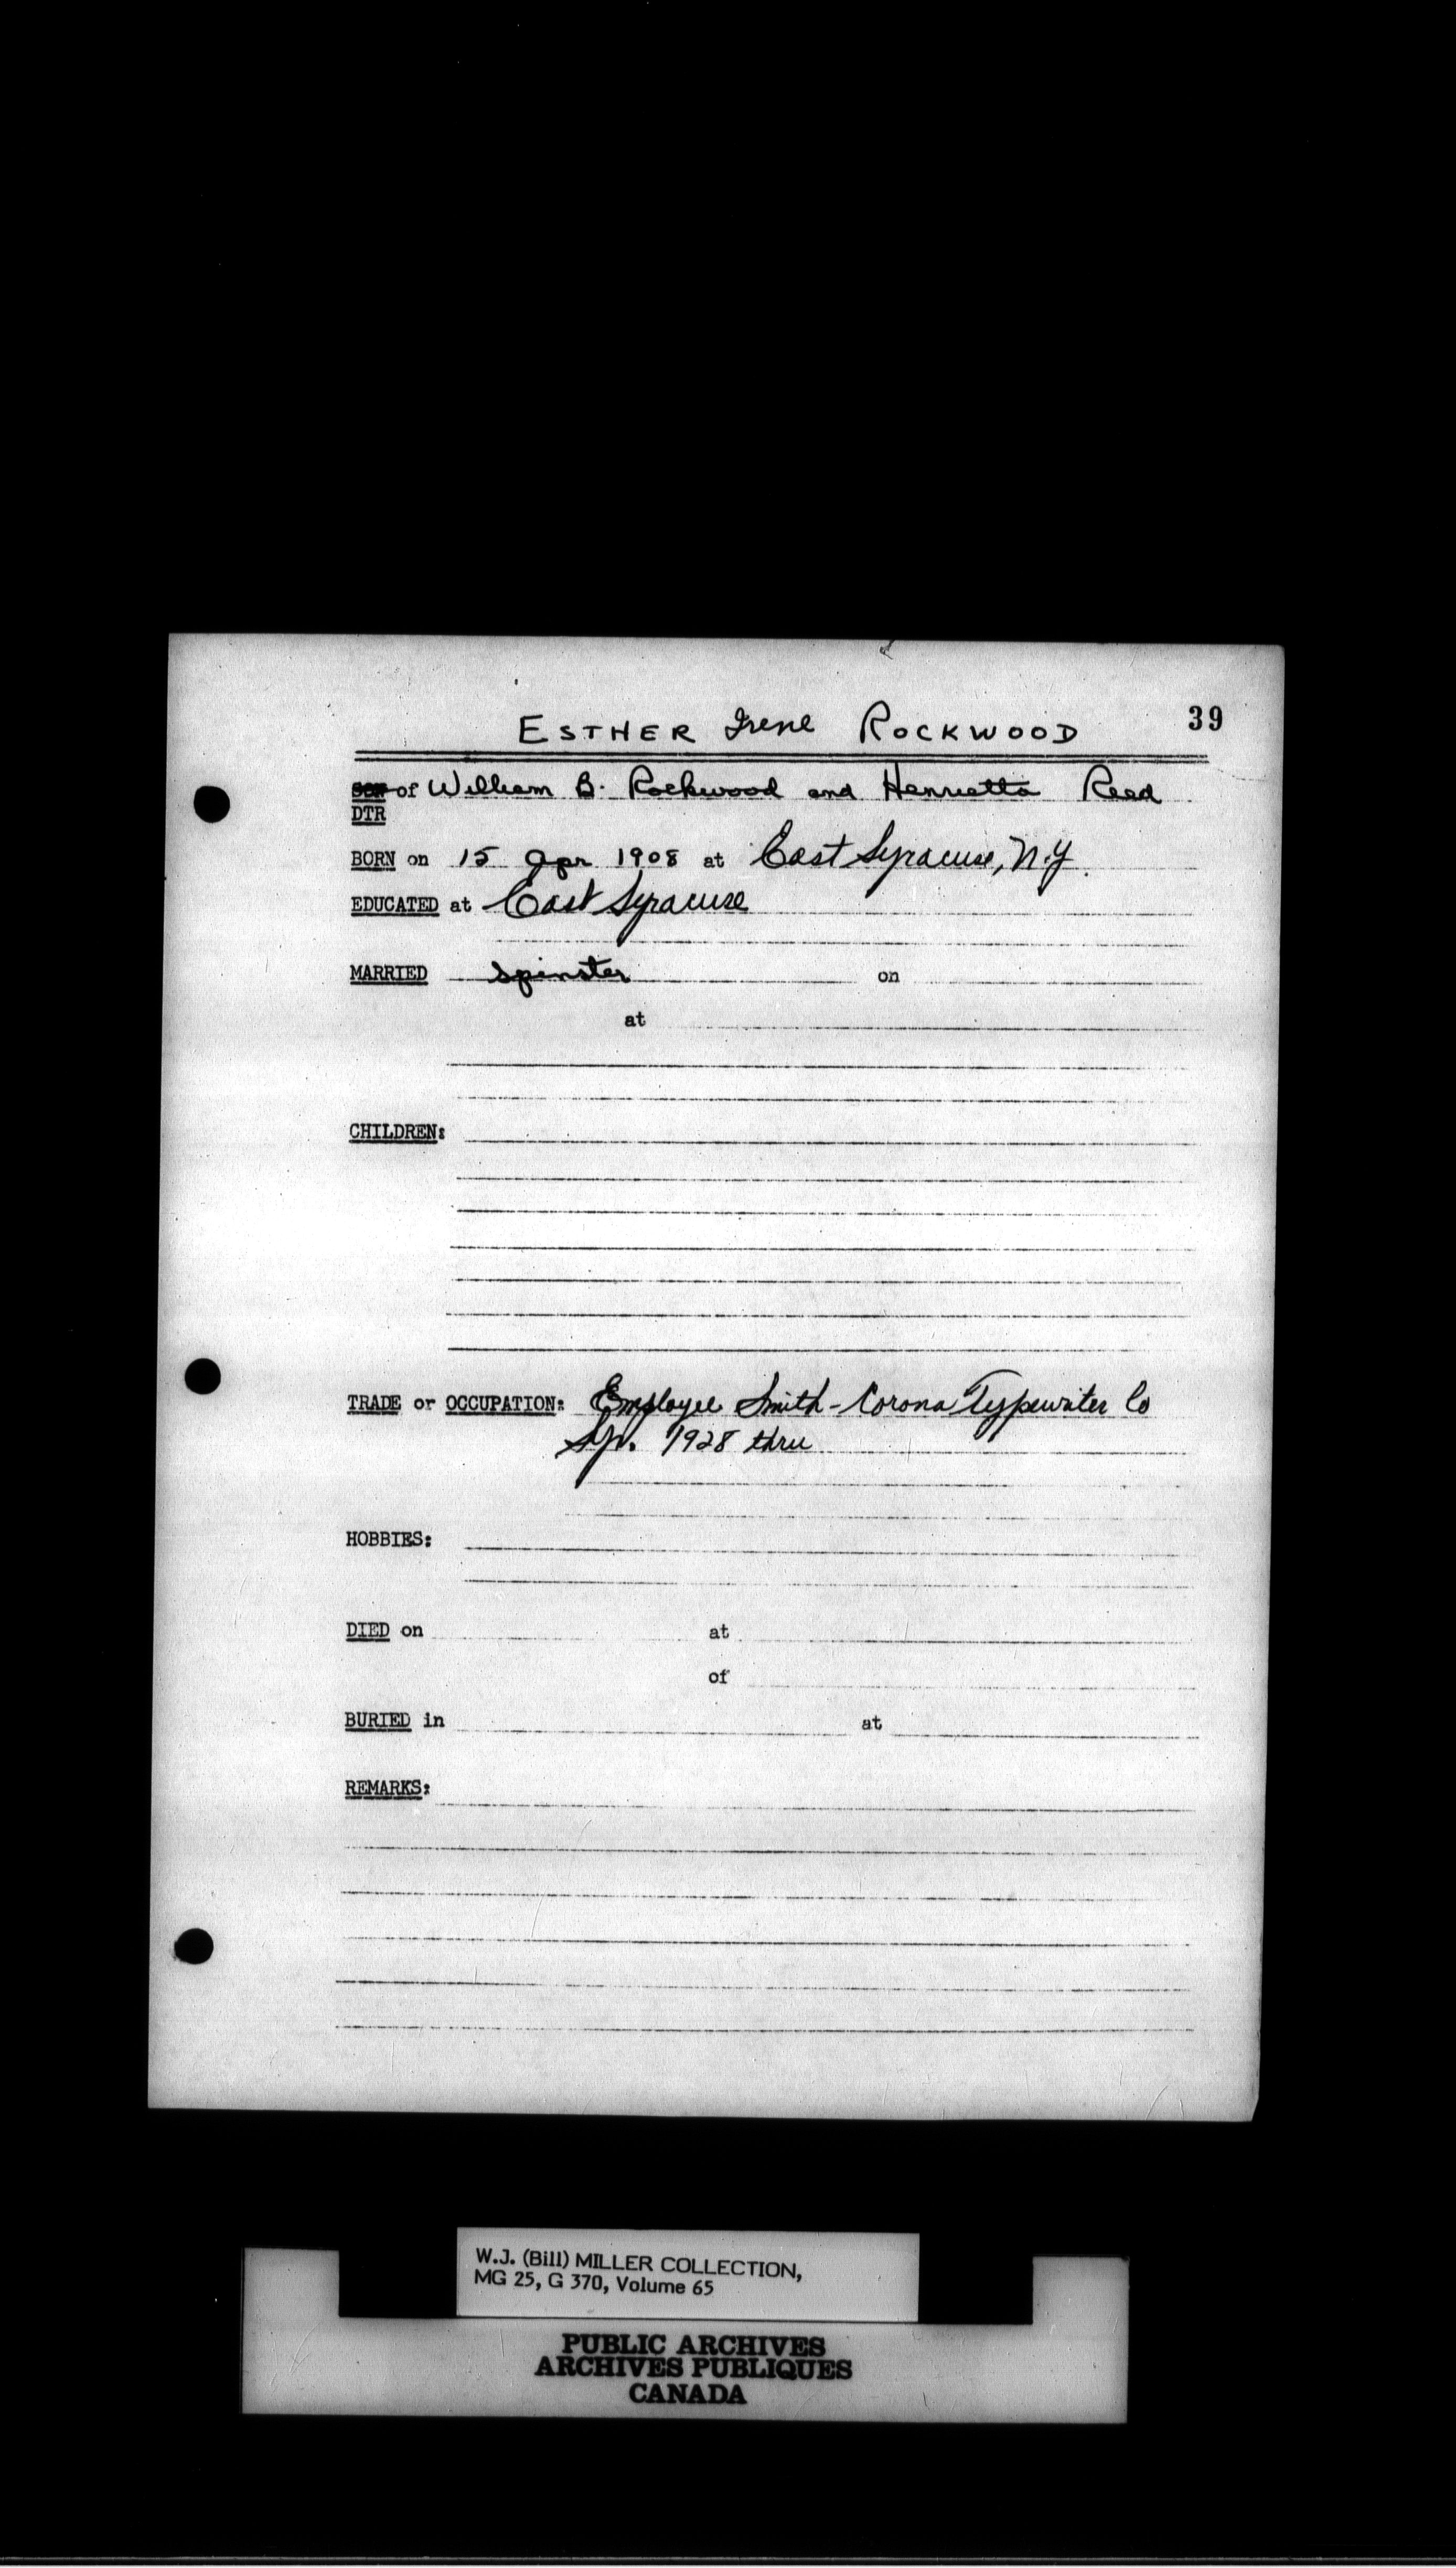 39
ESTHER Irene ROCKWOOD
SON of William B. Rockwood and Henrietta Reed
DTR
BORN on 15 Apr 1908 at East Syracuse, N.Y.
EDUCATED at East Syracuse
MARRIED spinster on
at
CHILDREN:
TRADE or OCCUPATION: Employee Smith-Corona Typewriter Co
Syr. 1928 thru
HOBBIES:
DIED on at
of
BURIED in at
REMARKS:
W.J. (Bill) MILLER COLLECTION,
MG 25, G 370, Volume 65
PUBLIC ARCHIVES
ARCHIVES PUBLIQUES
CANADA